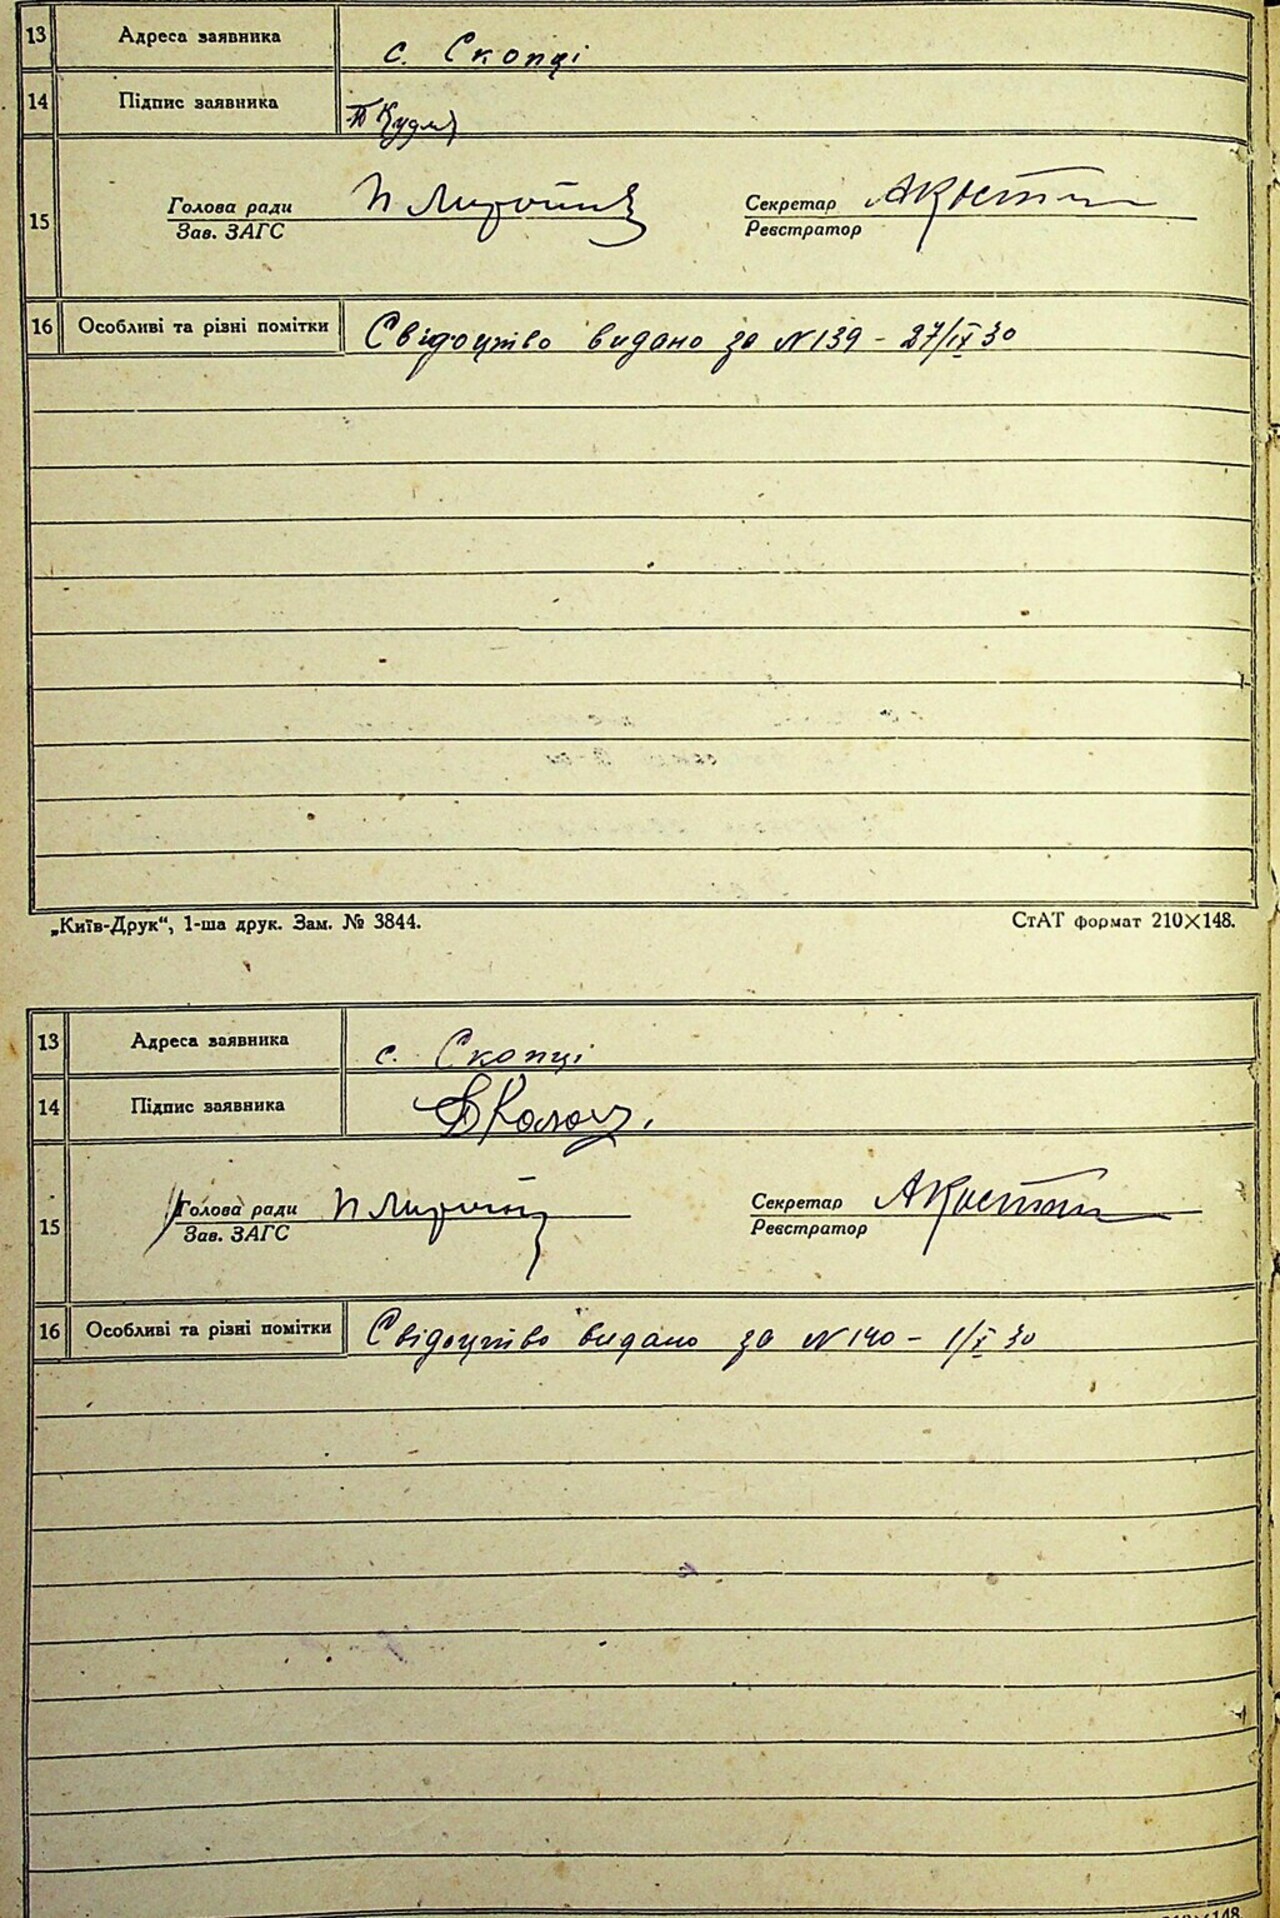 13 Адреса заявника с. Скопці
14 Підпис заявника
Голова ради Секретар
15
Зав. ЗАГС Реєстратор
16 Особливі та різні помітки Свідоцтво видано за N 139 - 27/IX 30
„Київ-Друк“, 1-ша друк. Зам. № 3844. СтАТ формат 210×148.
13 Адреса заявника с. Скопці
14 Підпис заявника
Голова ради Секретар
15
Зав. ЗАГС Реєстратор
16 Особливі та різні помітки Свідоцтво видано за N 140 - 1/X 30